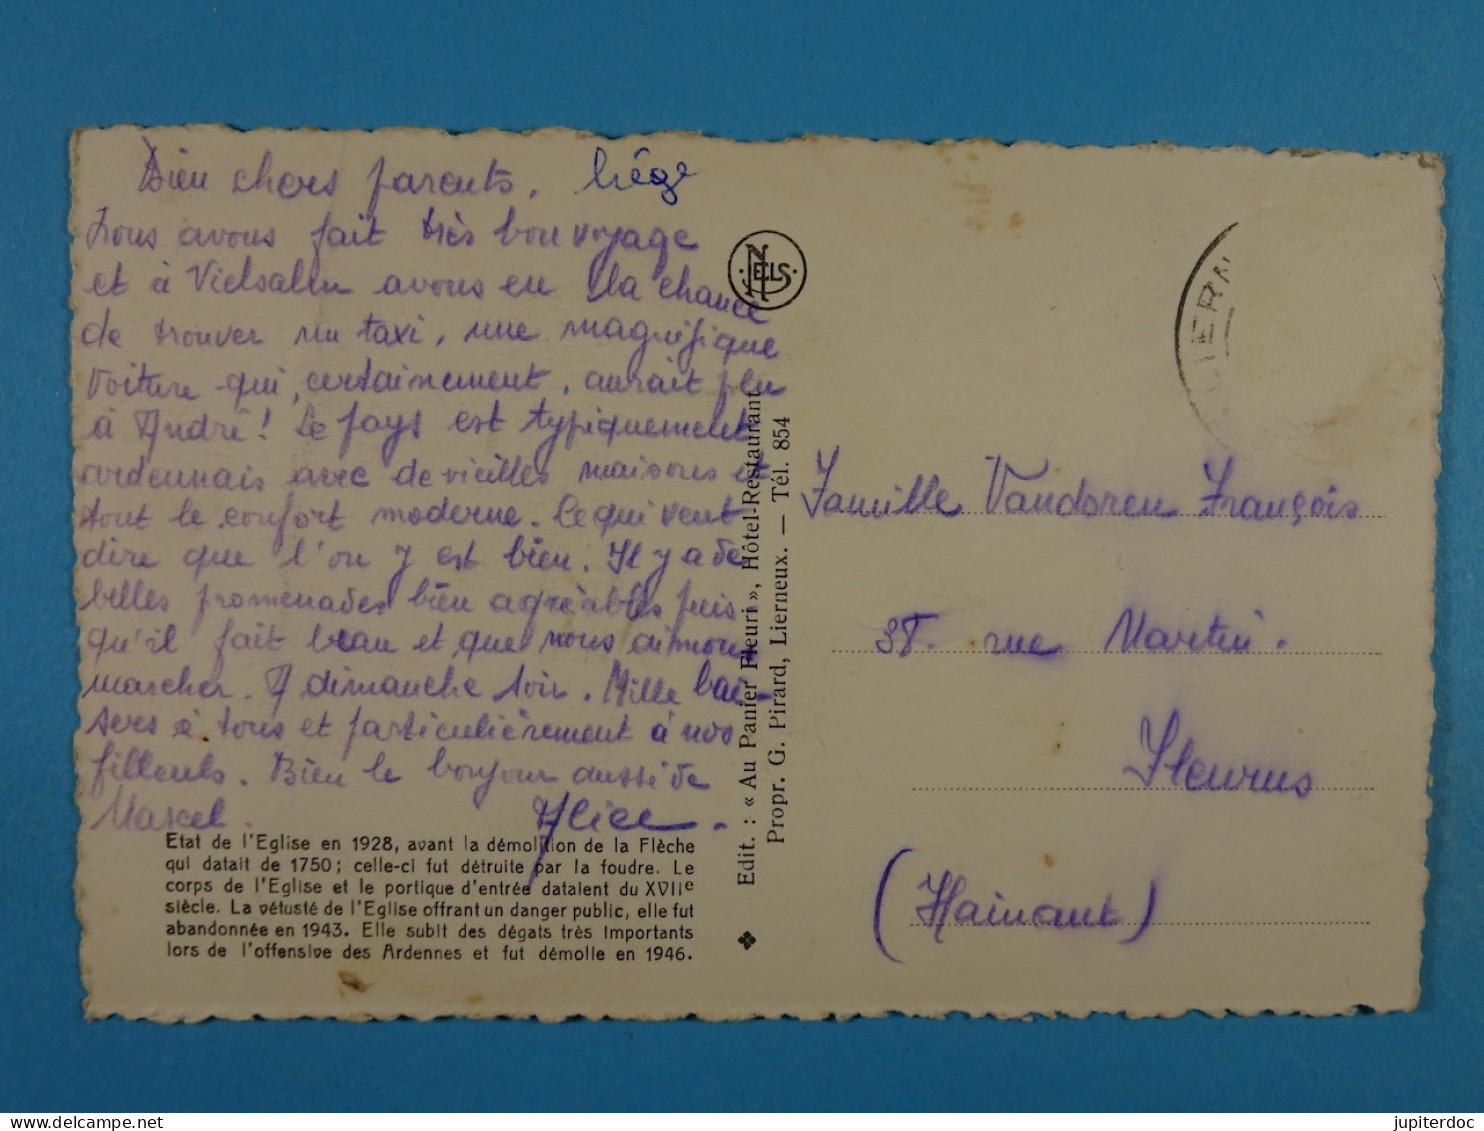 Bien chers parents. Liége
Nous avons fait très bon voyage
et à Vielsalm avons eu la chance
de trouver un taxi, une magnifique
voiture qui, certainement, aurait plu
à André! Le pays est typiquement
ardennais avec de vieilles maisons et
tout le confort moderne. Ce qui veut
dire que l'on y est bien. Il y a de
belles promenades bien agréables puis
qu'il fait beau et que nous aimons
marcher. A dimanche soir. Mille bai-
sers à tous et particulièrement à nos
filleuls. Bien le bonjour aussi de
Marcel. Alice.
Etat de l'Eglise en 1928, avant la démolition de la Flèche
qui datait de 1750; celle-ci fut détruite par la foudre. Le
corps de l'Eglise et le portique d'entrée dataient du XVIIe
siècle. La vétusté de l'Eglise offrant un danger public, elle fut
abandonnée en 1943. Elle subit des dégats très importants
lors de l'offensive des Ardennes et fut démolie en 1946.
NELS
Edit. : « Au Panier Fleuri », Hôtel-Restaurant
Propr. G. Pirard, Lierneux. — Tél. 854
LIERN
Famille Vandoren François
rue Martin.
Fleurus
(Hainaut)
jupiterdoc